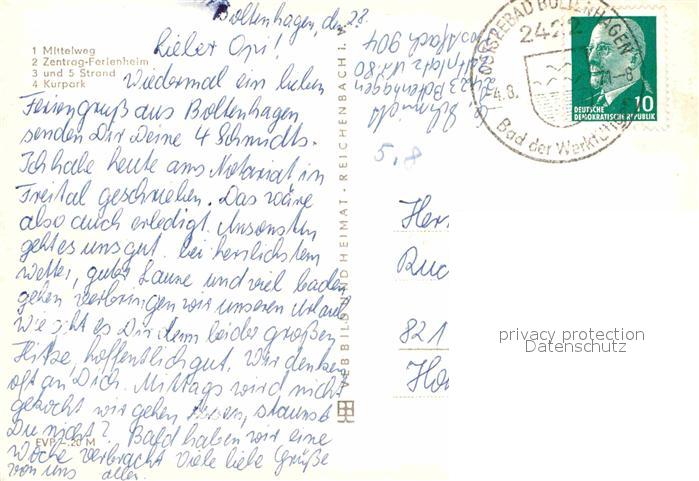 Boltenhagen, den 28.
Lieber Opi!
1 Mittelweg
2 Zentrag-Ferienheim
3 und 5 Strand
4 Kurpark
Wiedermal ein lieben
Feriengruß aus Boltenhagen
senden Dir Deine 4 Schmidts.
Ich habe heute ans Notariat in
Freital geschrieben. Das wäre
also auch erledigt. Ansonsten
geht es uns gut. bei herrlichstem
Wetter, guter Laune und viel baden
gehen verbringen wir unseren Urlaub
Wie geht es Dir denn bei der großen
Hitze, hoffentlich gut. Wir denken
oft an Dich. Mittags wird nicht
gekocht wir gehen essen, staunst
Du nicht? Bald haben wir eine
EVP -.20 M
Woche verbracht Viele liebe Grüße
von uns allen.
VEB BILD UND HEIMAT · REICHENBACH I. V.
Schmidt
Boltenhagen
Postfach 904
5.8
OSTSEEBAD BOLTENHAGEN
2422
4.8.
71-8
Bad der Werktätigen
DEUTSCHE
DEMOKRATISCHE REPUBLIK
10
Her
Rud
821
privacy protection
Datenschutz